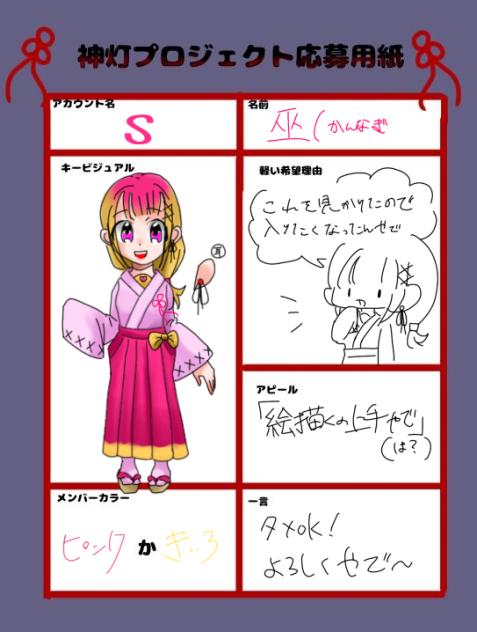 神灯プロジェクト応募用紙
アカウント名
S
名前
巫(かんなぎ
キービジュアル
耳
軽い希望理由
これを見かけたので
入りたくなってんやで
アピール
「絵描くの上手やで」
(は?)
メンバーカラー
ピンク か きいろ
一言
タメOK!
よろしくやで〜